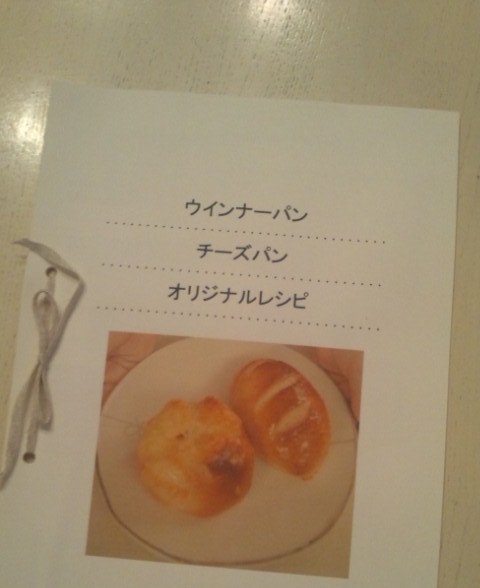 ウインナーパン
チーズパン
オリジナルレシピ